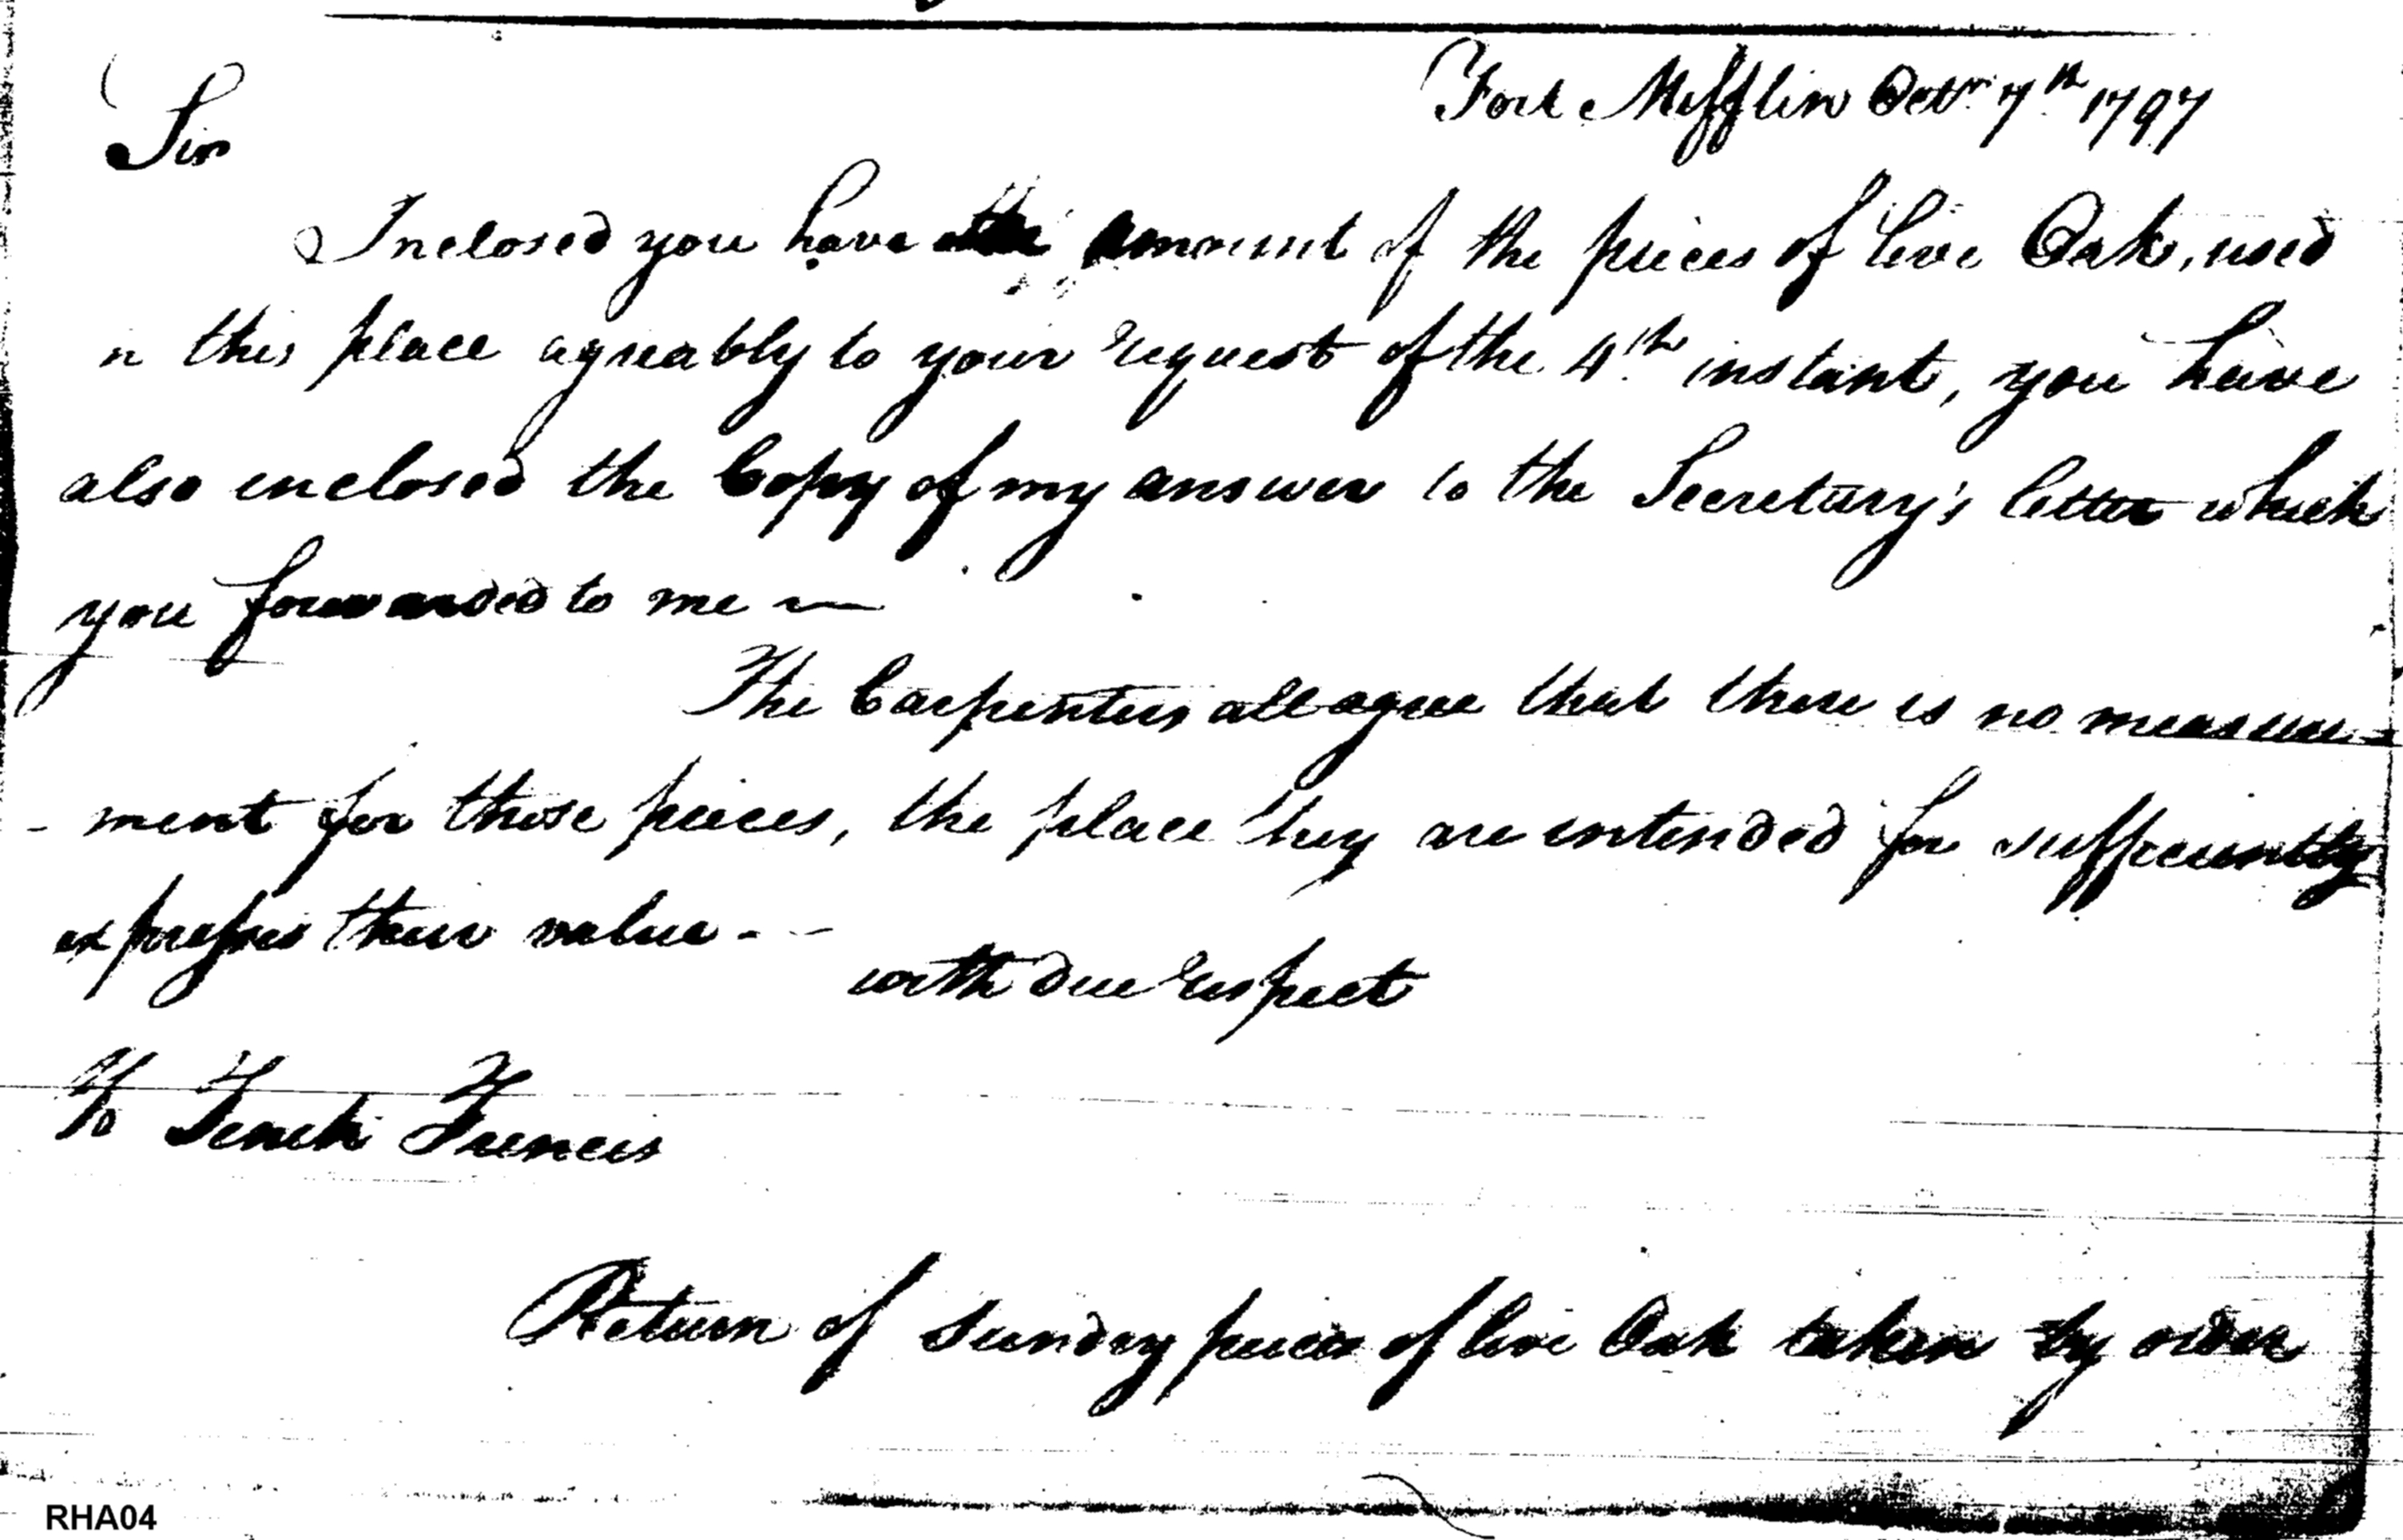 Fort Mifflin Octr. 7th 1797
Sir
Inclosed you have the amount of the pieces of live Oak, used
n this place agreably to your request of the 4th instant, you have
also enclosed the Copy of my answer to the Secretary's letter which
you forwarded to me —
The Carpenters all agree that there is no measure-
- ment for those pieces, the place they are intended for sufficiently
expresses their value - -
with due respect
To Tench Francis
Return of Sundry pieces of live Oak taken by order
RHA04